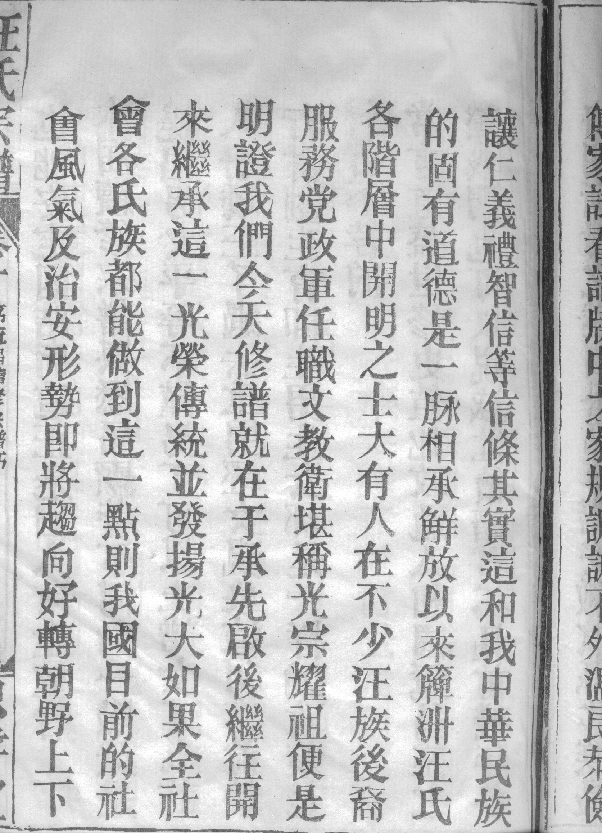 不外溫恭儉
讓仁義禮智信等信條其實這和我中華民族
的固有道德是一脉相承觧放以來簰洲汪氏
各階層中開明之士大有人在不少汪族後裔
服務党政軍任職文教衛堪稱光宗耀祖便是
明證我們今天修譜就在于承先啟後繼往開
來繼承這一光榮傳統並發揚光大如果全社
會各氏族都能做到這一點則我國目前的社
會風氣及治安形勢即將趨向好轉朝野上下
汪氏宗譜